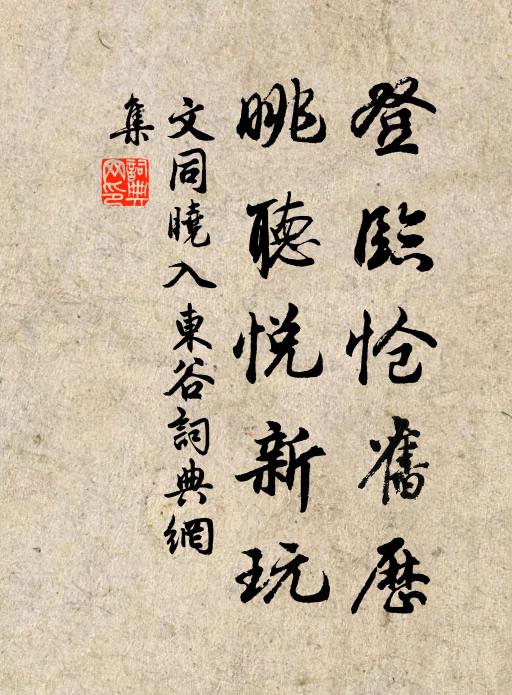 登臨愴舊歷
眺聽悅新玩
文同曉入東谷詞典網
集
詞典網印